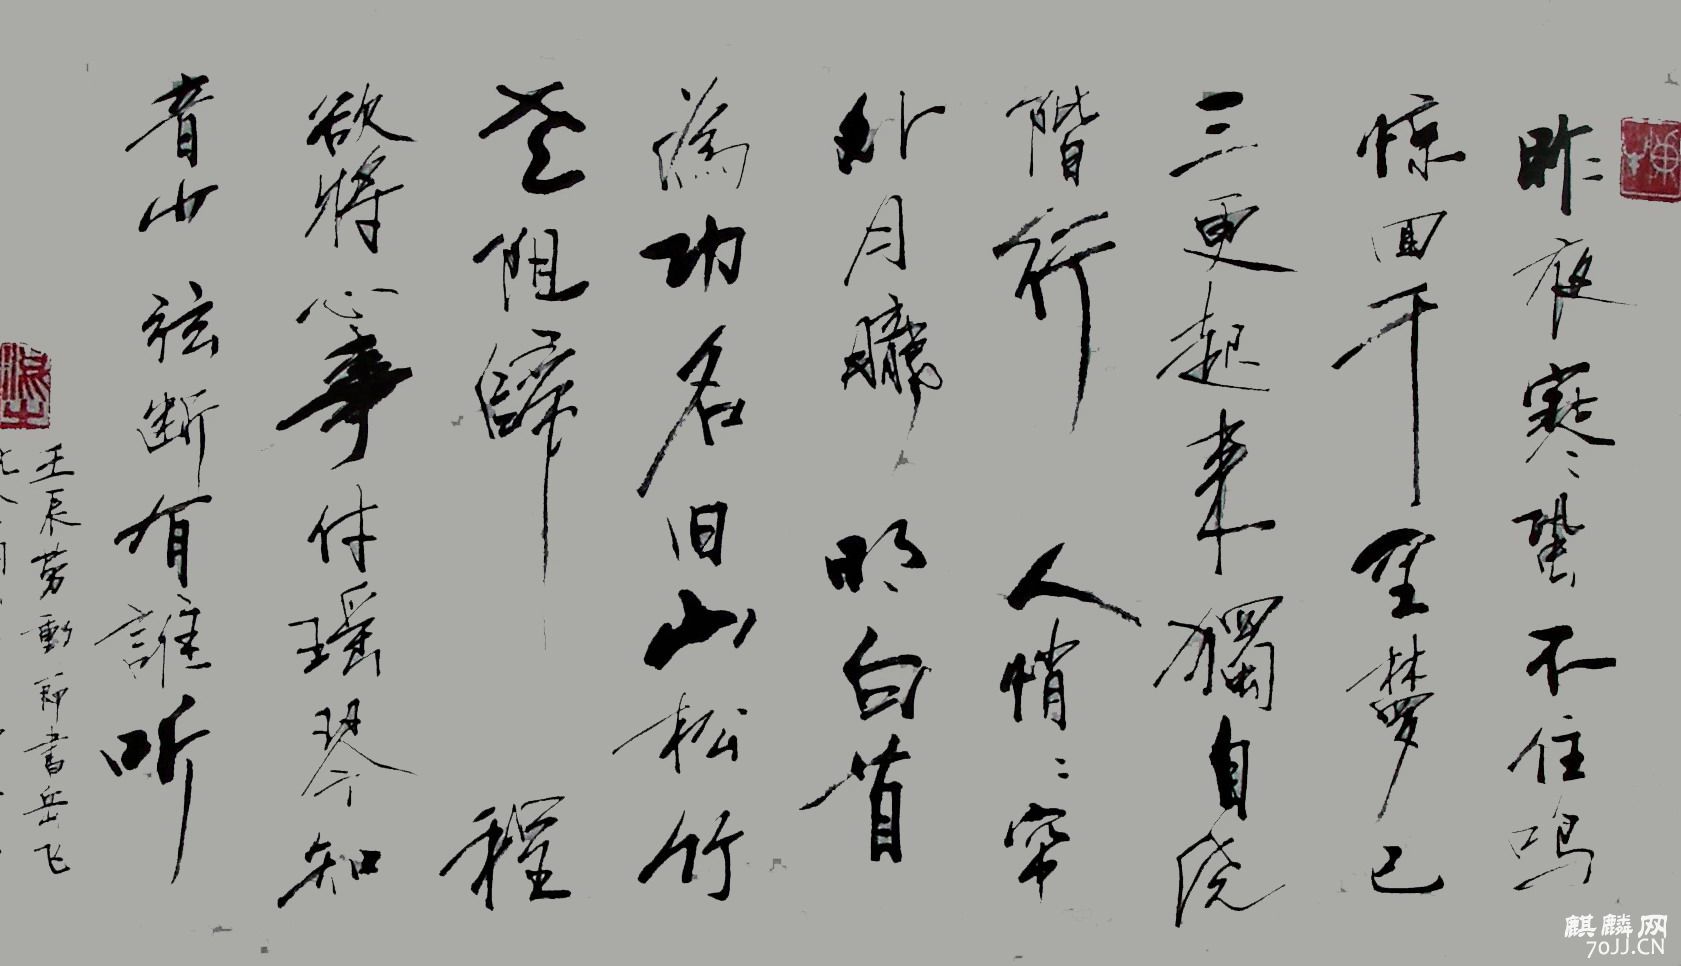 昨夜寒蛩不住鸣
惊回千里梦已
三更起来獨自绕
階行 人悄悄帘
外月朧 明白首
為功名旧山松竹
老阻歸 程
欲將心事付瑶琴知
音少弦断有誰听
壬辰劳動节書岳飞
麒麟网
70JJ.CN